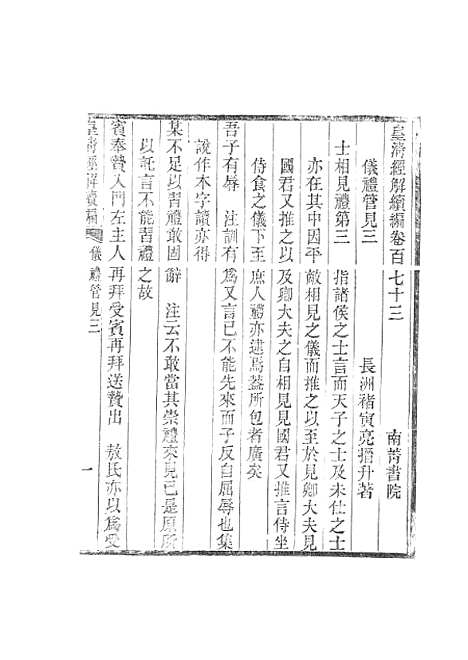 皇清經解續編卷百七十三 南菁書院
儀禮管見三 長洲褚寅亮搢升著
士相見禮第三 指諸侯之士言而天子之士及未仕之士
亦在其中因平敵相見之儀而推之以至於見卿大夫見
國君又推之以及卿大夫之自相見見國君又推言侍坐
侍食之儀下至庶人禮亦逮焉蓋所包者廣矣
吾子有辱 注訓有爲又言已不能先來而子反自屈辱也集
說作本字讀亦得
某不足以習禮敢固辭 注云不敢當其崇禮來見已是原所
以託言不能習禮之故
賓奉贄入門左主人再拜受賓再拜送贄出 敖氏亦以爲受
皇清經解續編 儀禮管見三 一